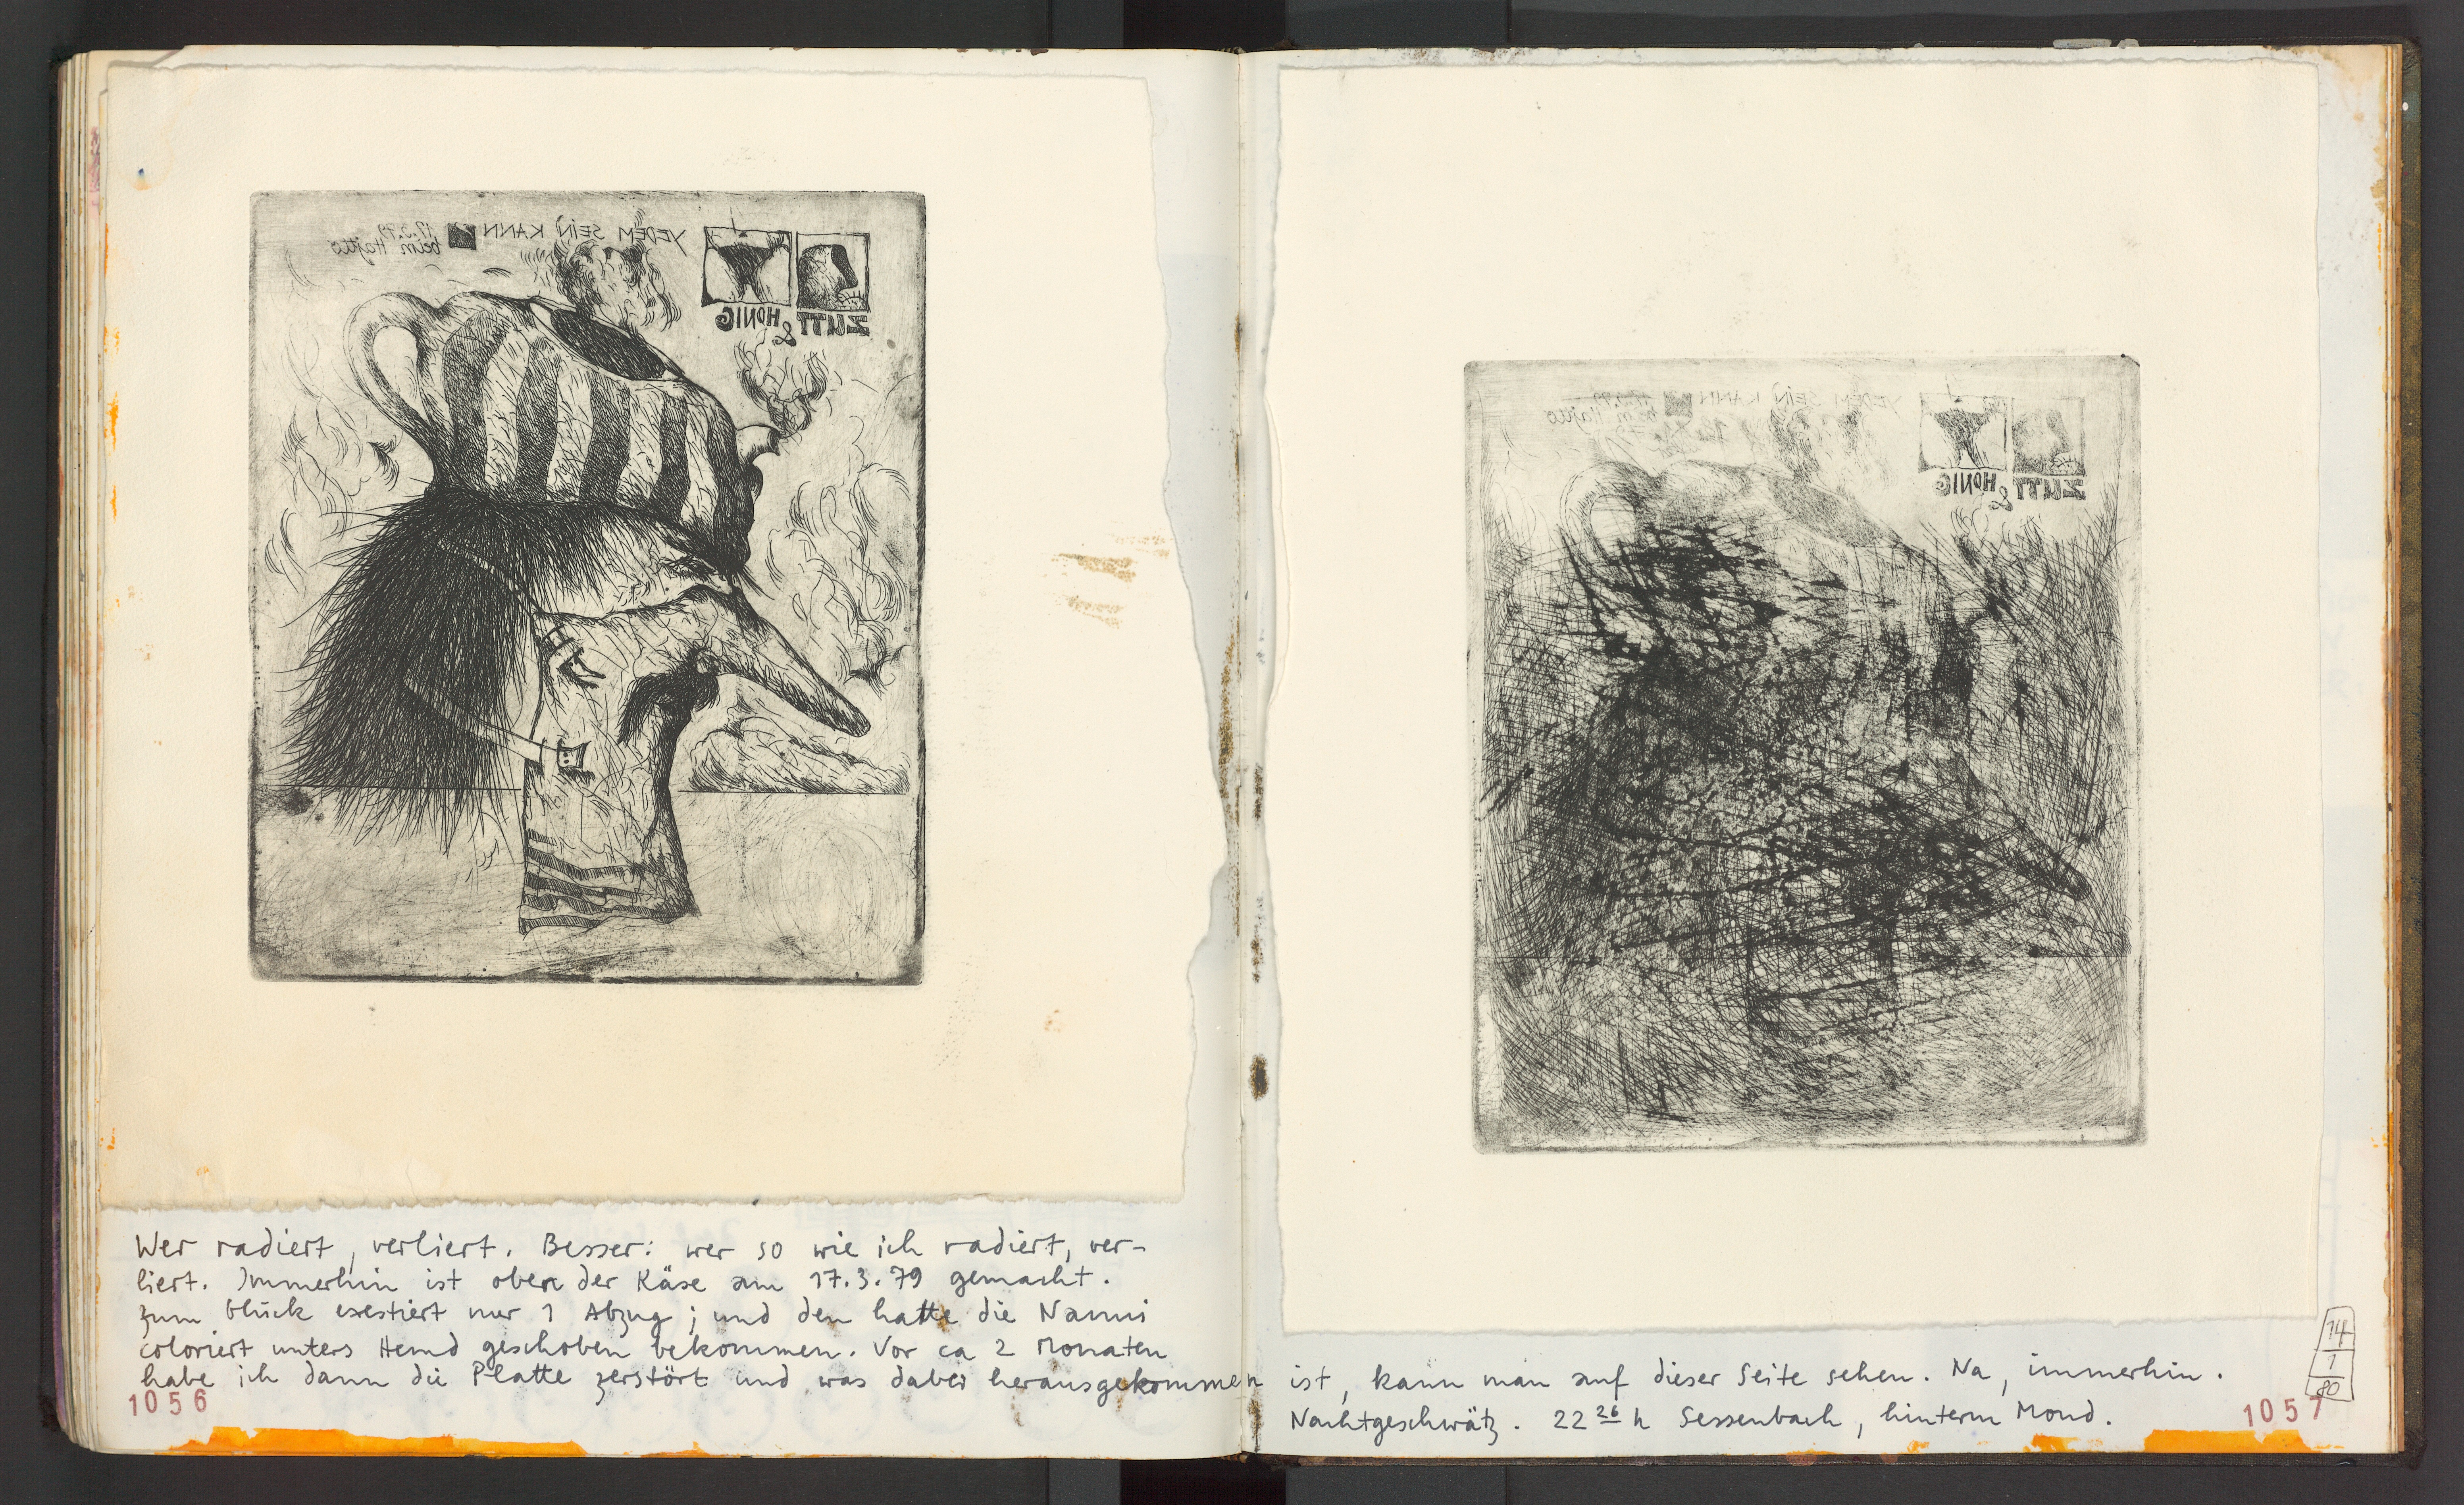 YEDEM SEIN KANN
17.3.79
beim Hajtto
ZUTT & HONIG
YEDEM SEIN KANN
ZUTT & HONIG
Wer radiert, verliert. Besser: wer so wie ich radiert, ver-
liert. Immerhin ist oben der Käse am 17.3.79 gemacht.
zum Glück exestiert nur 1 Abzug; und den hatte die Nanni
coloriert unters Hemd geschoben bekommen. Vor ca 2 Monaten
habe ich dann die Platte zerstört und was dabei herausgekommen
1056
ist, kann man auf dieser Seite sehen. Na, immerhin.
Nachtgeschwätz. 22 26 h Sessenbach, hinterm Mond.
14
1
80
1057